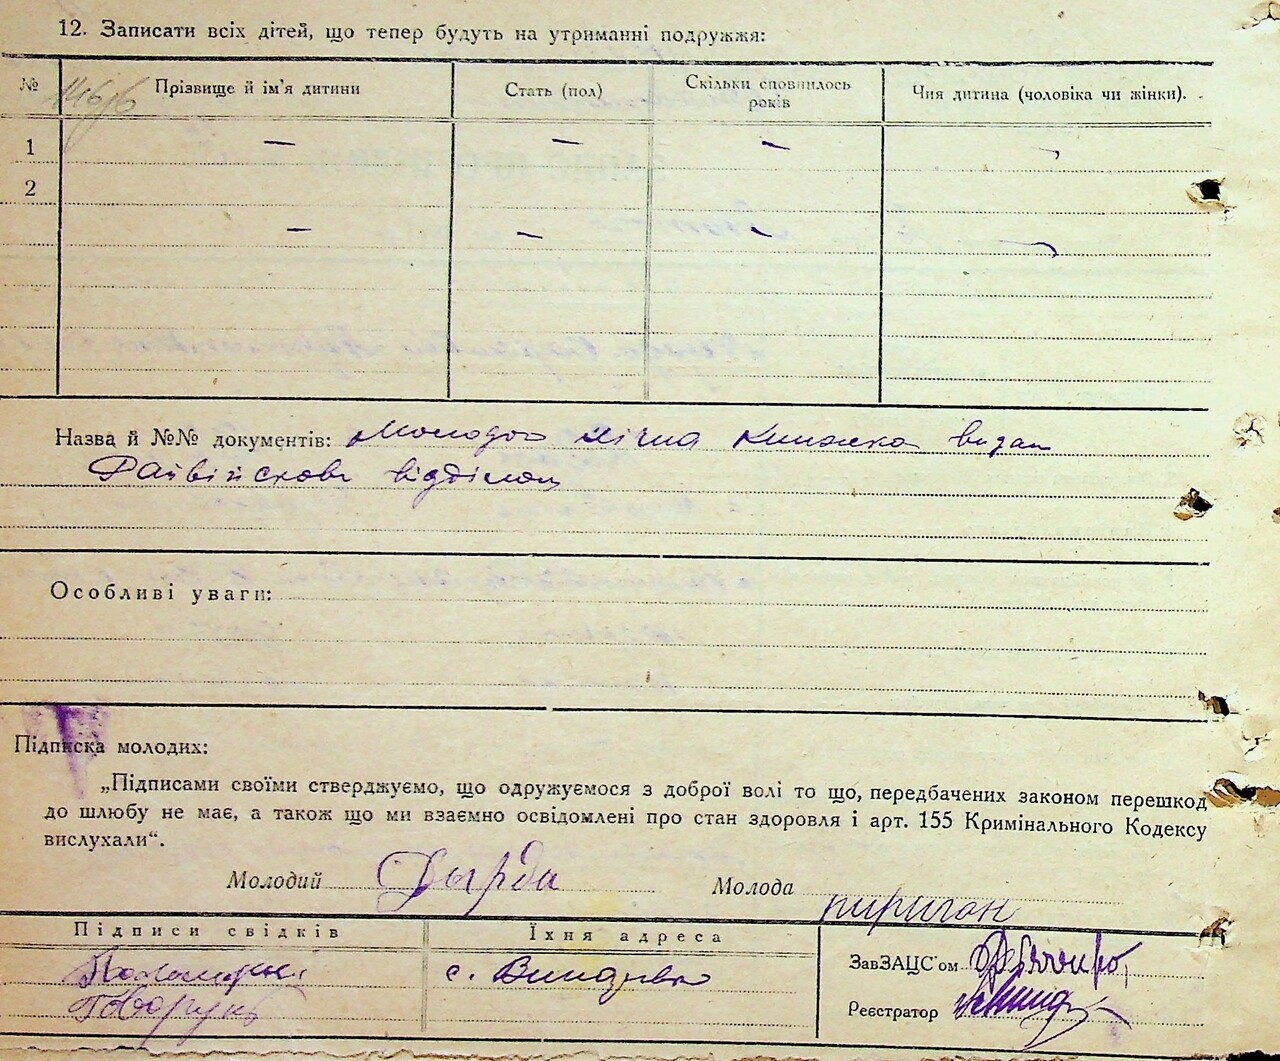 12. Записати всіх дітей, що тепер будуть на утриманні подружжя:
№ Прізвище й ім'я дитини Стать (пол) Скільки сповнилось років Чия дитина (чоловіка чи жінки).
1 — — — —
2
— — — —
Назва й №№ документів: книжка видан
Райвійскове відділом
Особливі уваги:
Підписка молодих:
„Підписами своїми стверджуємо, що одружуємося з доброї волі то що, передбачених законом перешкод
до шлюбу не має, а також що ми взаємно освідомлені про стан здоровля і арт. 155 Кримінального Кодексу
вислухали“.
Молодий Дырда Молода пириган
Підписи свідків Їхня адреса
ЗавЗАЦС'ом
с.
Реєстратор